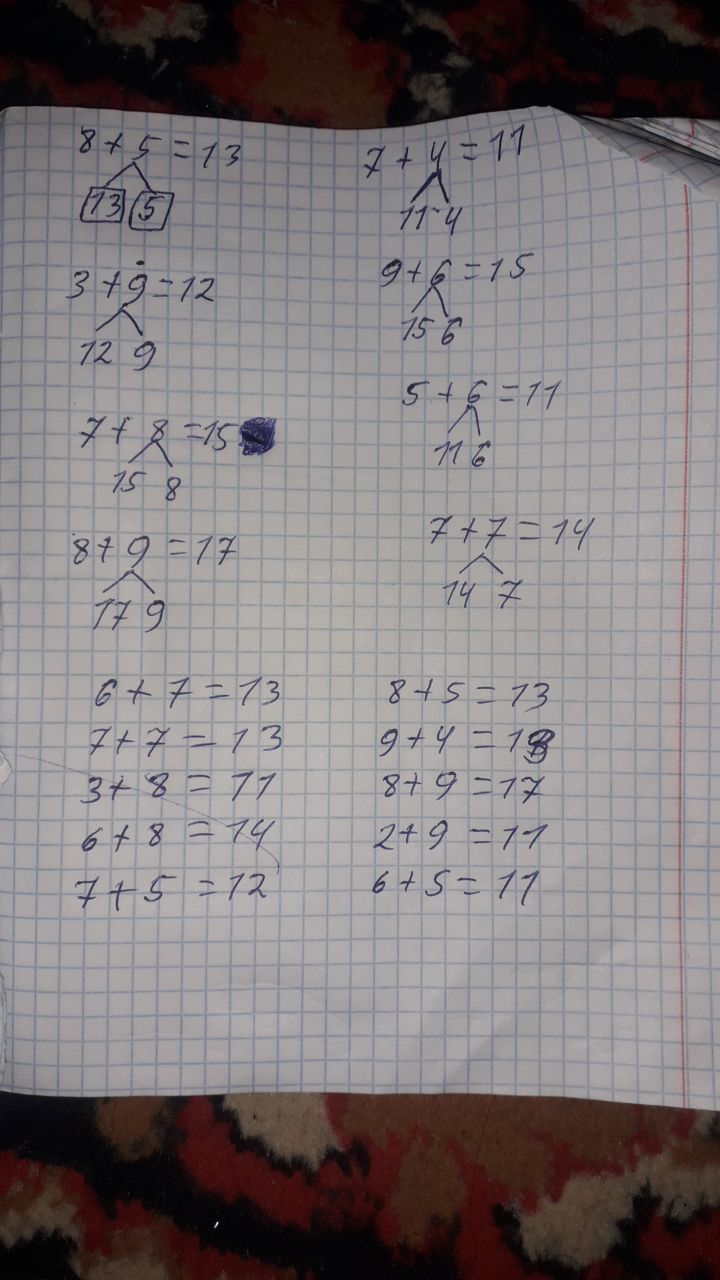 8+5=13 7+4=11
13 5 11 4
3+9=12 9+6=15
12 9 15 6
5+6=11
7+8=15 11 6
15 8
7+7=14
8+9=17 14 7
17 9
6+7=13 8+5=13
7+7=13 9+4=13
3+8=11 8+9=17
6+8=14 2+9=11
7+5=12 6+5=11